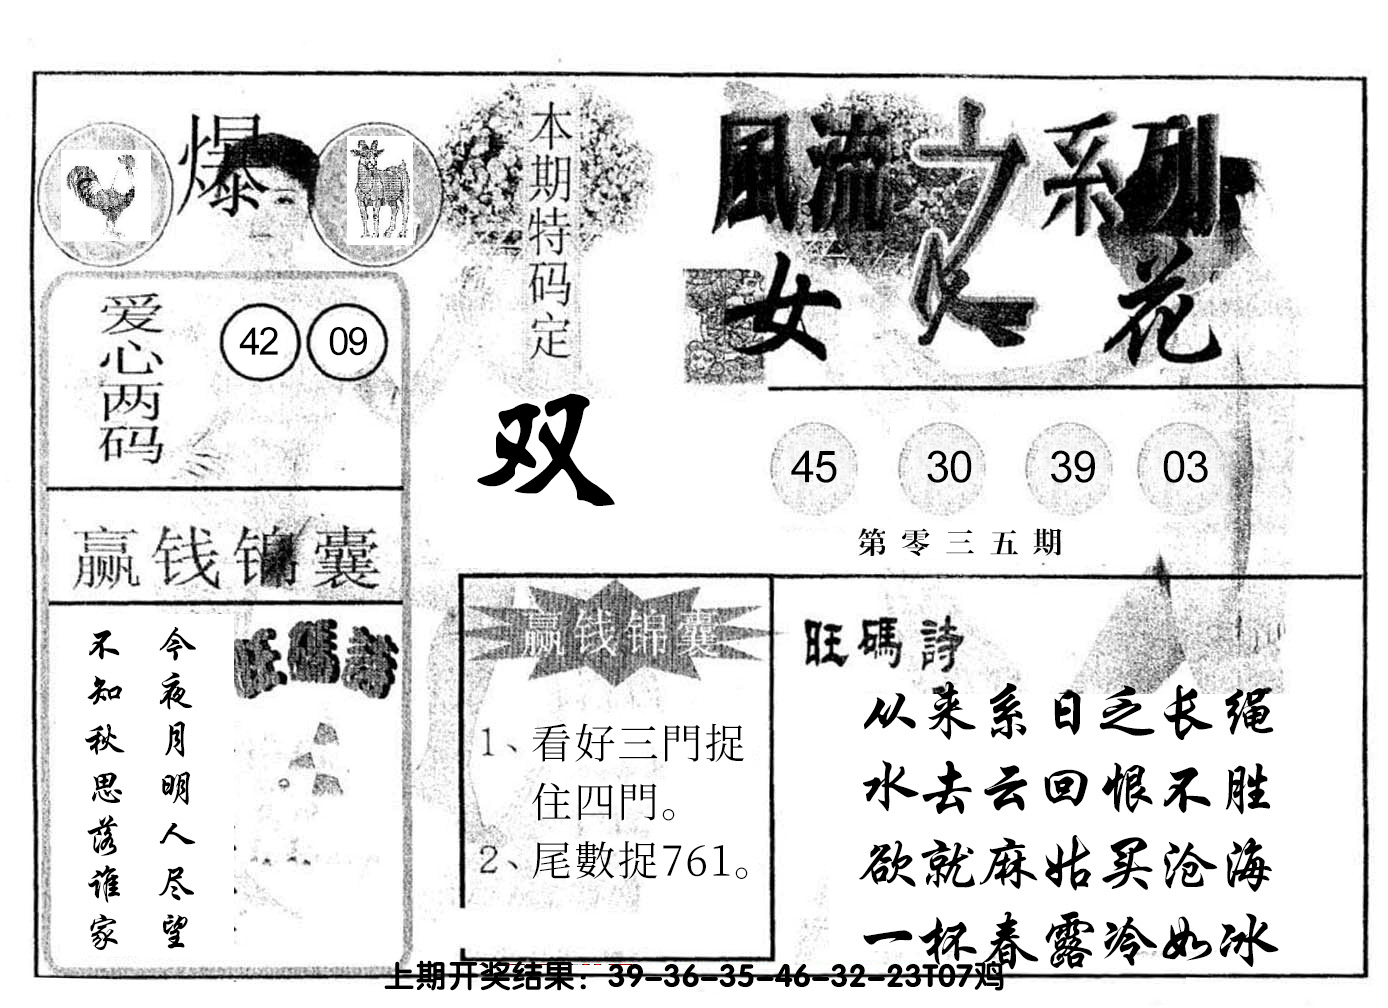 爆
本期特码定
双
風流之系列
女人花
爱心两码
42 09
45 30 39 03
第零三五期
赢钱锦囊
旺碼詩
今夜月明人尽望
不知秋思落谁家
赢钱锦囊
1、看好三門捉
住四門。
2、尾數捉761。
旺碼詩
从来系日乏长绳
水去云回恨不胜
欲就麻姑买沧海
一杯春露冷如冰
上期开奖结果：39-36-35-46-32-23T07鸡